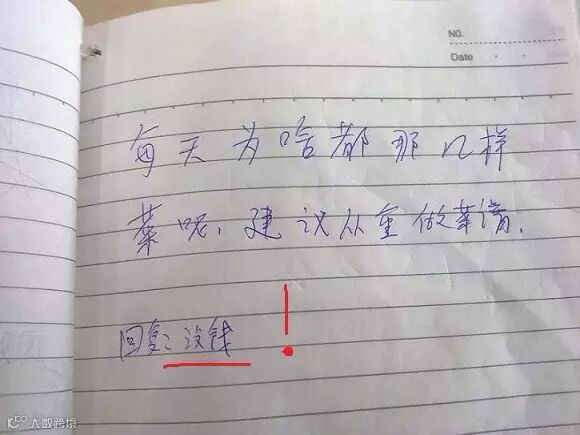 NO.
Date
每天为啥都那几样
菜呢,建议从重做菜谱.
回复:没钱
大数跨境